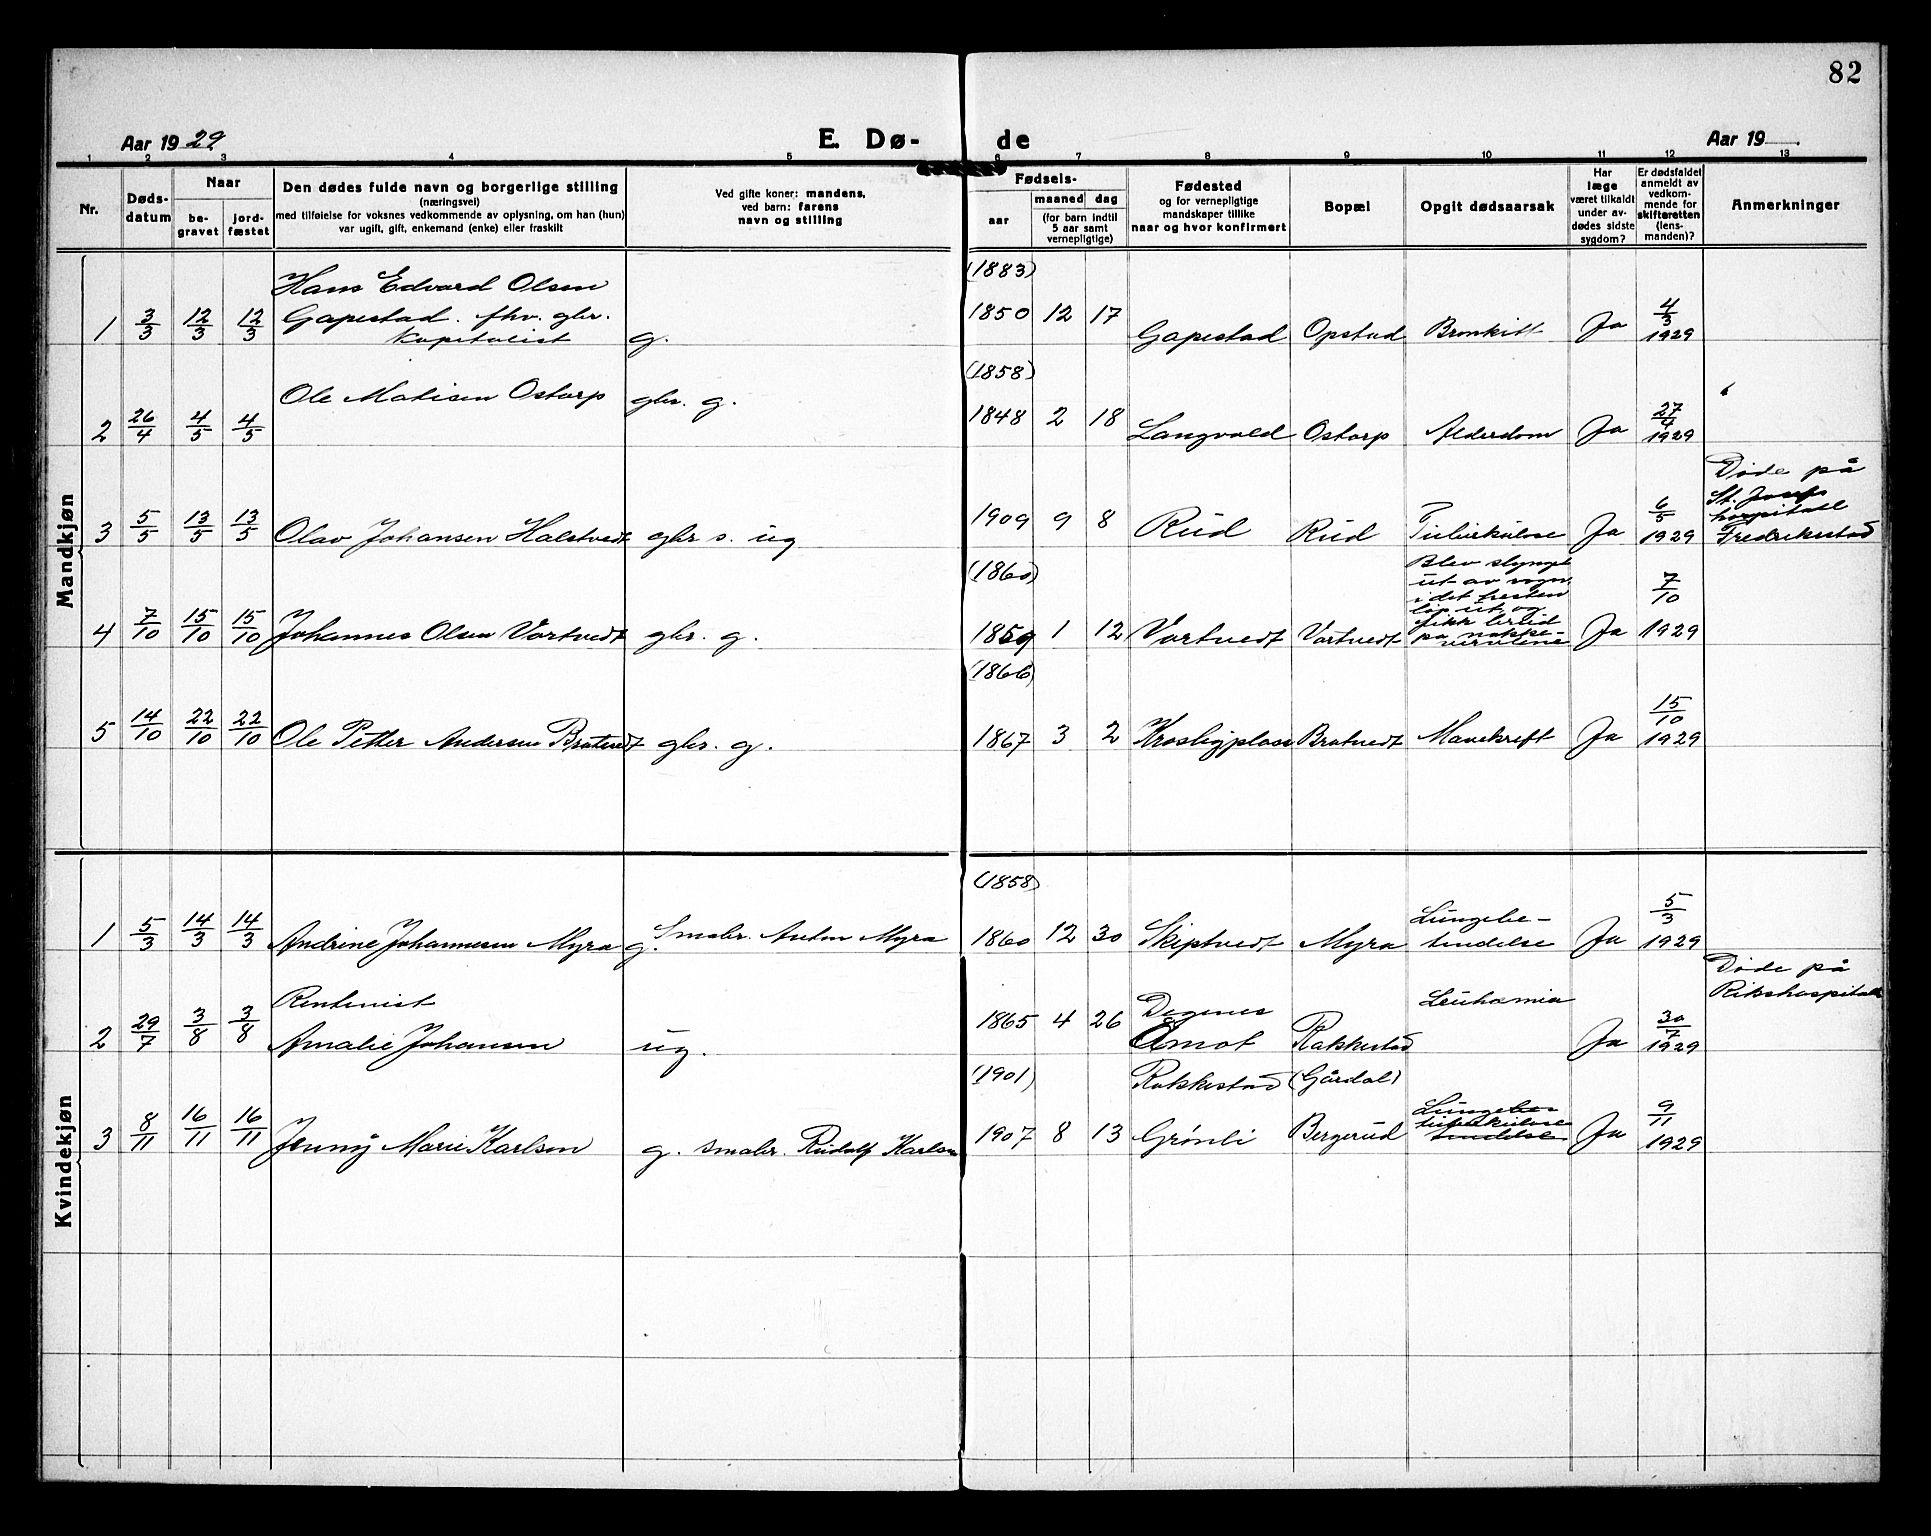 82
Aar 1929
E. Dø-
de
Aar 19
1 2 3 4 5 6 7 8 9 10 11 12 13
Nr.
Døds-
datum
Naar
be-
gravet
jord-
fæstet
Den dødes fulde navn og borgerlige stilling
(næringsvei)
med tilføielse for voksnes vedkommende av oplysning, om han (hun)
var ugift, gift, enkemand (enke) eller fraskilt
Ved gifte koner: mandens,
ved barn: farens
navn og stilling
Fødsels-
aar
maaned dag
(for barn indtil
5 aar samt
vernepligtige)
Fødested
og for vernepligtige
mandskaper tillike
naar og hvor konfirmert
Bopæl
Opgit dødsaarsak
Har
læge
været tilkaldt
under av-
dødes sidste
sygdom?
Er dødsfaldet
anmeldt av
vedkom-
mende for
skifteretten
(lens-
manden)?
Anmerkninger
Mandkjøn
1 3/3 12/3 12/3
Hans Edvard Olsen
Gapestad. fhv. gbr.
Kapitalist
g.
(1883)
1850 12 17 Gapestad Opstad Bronkitt Ja 4/3 1929
2 26/4 4/5 4/5
Ole Matisen Ostorp gbr. g.
(1858)
1848 2 18 Langvold Ostorp Alderdom Ja 27/4 1929
3 5/5 13/5 13/5
Olav Johansen Halstvedt gbr s. ug
1909 9 8 Rud Rud Tuberkulose Ja 6/5 1929
Døde på
St. Josefs
hospitall
Fredrikstad
4 7/10 15/10 15/10
Johannes Olsen Vortvedt gbr. g.
(1860)
1859 1 12 Vortvedt Vortvedt
Blev slynget
ut av vogn,
i det hesten
løp ut og
fikk brud
på nakke-
virvlene
Ja 7/10 1929
5 14/10 22/10 22/10
Ole Petter Andersen Bratvedt gbr. g.
(1866)
1867 3 2 Bratvedt Mavekreft Ja 15/10 1929
Kvindekjøn
1 5/3 14/3 14/3
Andrine Johannesen Myra g. Smabr. Anton Myra
(1858)
1860 12 30 Skiptvedt Myra
Lungebe-
tendelse
Ja 5/3 1929
2 29/7 3/8 3/8
Rentenist
Amalie Johansen ug.
1865 4 26
Degernes
Åmot
Rakkestad
Leuhamia
Ja 30/7 1929
Døde på
Rikshospitalet
3 8/11 16/11 16/11
Jenny Marie Karlsen g. smabr. Rudolf Karlsen
(1901)
1907 8 13
Rakkestad
Grønli
(Gårdal)
Bergerud
Lungebe-
tuberkulose
tendelse
Ja 9/11 1929